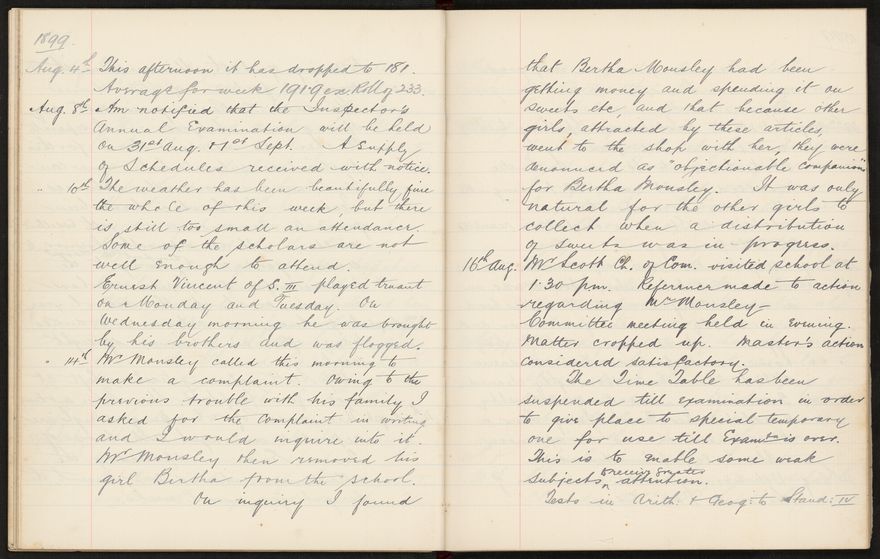 1899.
Aug. 4th This afternoon it has dropped to 181.
Average for week 191.9 ex Roll of 233.
Aug. 8th Am notified that the Inspector's
Annual Examination will be held
on 31st Aug. & 1st Sept. A Supply
of Schedules received with notice.
" 10th The weather has been beautifully fine
the whole of this week, but there
is still too small an attendance.
Some of the scholars are not
well enough to attend.
Ernest Vincent of S. III played truant
on Monday and Tuesday. On
Wednesday morning he was brought
by his brothers and was flogged.
" 14th Mr Monsley called this morning to
make a complaint. Owing to the
previous trouble with his family I
asked for the complaint in writing
and I would inquire into it.
Mr Monsley then removed his
girl Bertha from the school.
On inquiry I found
that Bertha Monsley had been
getting money and spending it on
sweets etc, and that because other
girls, attracted by these articles,
went to the shop with her, they were
denounced as "objectionable companions"
for Bertha Monsley. It was only
natural for the other girls to
collect when a distribution
of sweets was in progress.
16th Aug. Mr Scott Ch. of Com. visited school at
1.30 pm. Reference made to action
regarding Mr Monsley-
Committee meeting held in Evening.
Matter cropped up. Master's action
considered satisfactory.
The Time Table has been
suspended till examination in order
to give place to special temporary
one for use till Examtn is over.
This is to enable some weak
subjects to receive greater attention.
Tests in Arith: & Geog: to Stand: IV